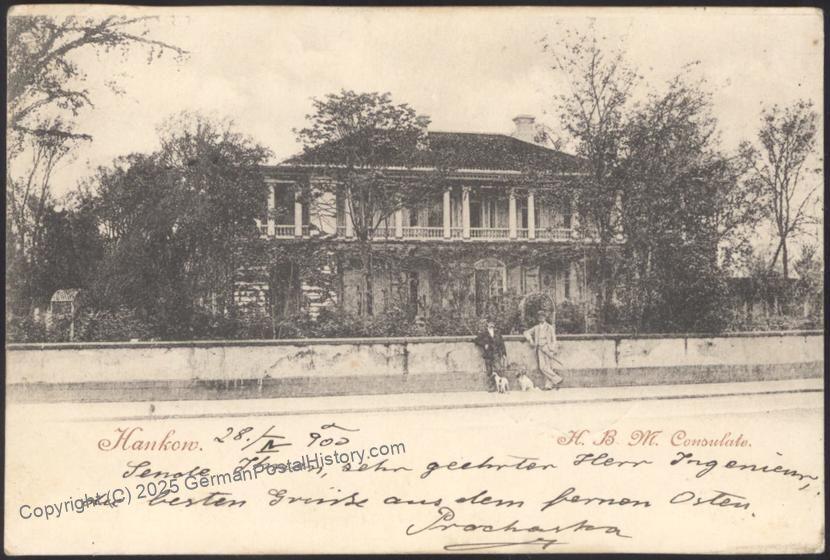 Hankow. 28./IV 900 H. B. M. Consulate.
Sende Ihnen, sehr geehrter Herr Ingenieur,
besten Grüsse aus dem fernen Osten.
Prochaska
Copyright (C) 2025 GermanPostalHistory.com